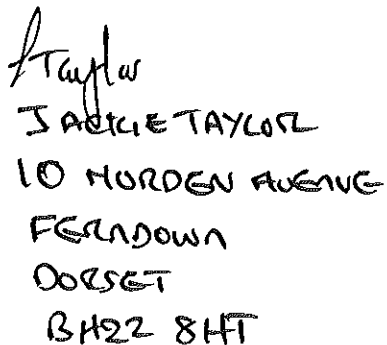 J Taylor
JACKIE TAYLOR
10 MORDEN AVENUE
FERNDOWN
DORSET
BH22 8HT